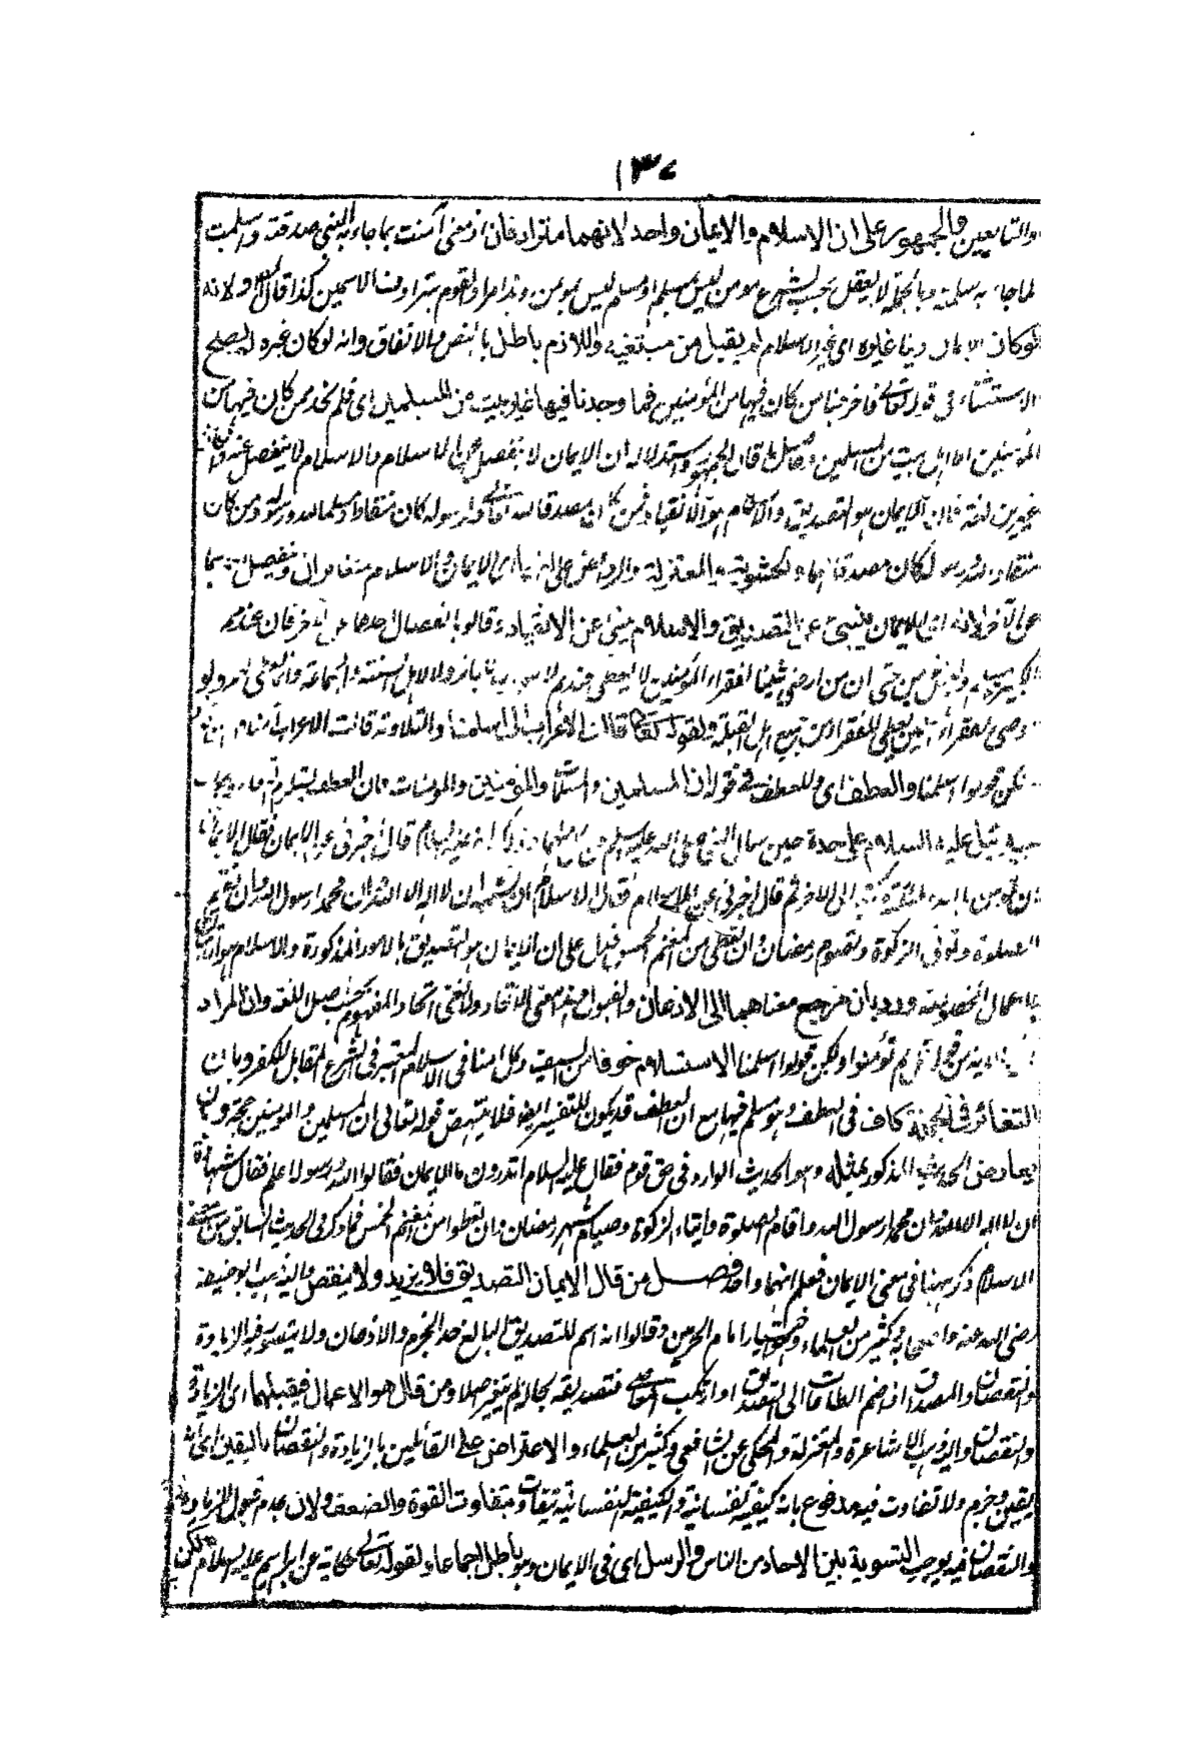 ١٣٧
والتابعين والجمهور على ان الاسلام والايمان واحد لانهما مترادفان اذ معنى آمنت بما جاء به النبي صدقته واسلمت
لما جاء به سلمته وبالجملة لا يعقل بحسب الشرع مومن ليس بمسلم او مسلم ليس بمومن وهذا مراد القوم بترادف الاسمين كذا قال السعد ولانه
لو كان الايمان دينا غيره اى غير الاسلام لم يقبل من مبتغيه واللازم باطل بالنص والاتفاق وانه لو كان غيره لم يصلح
الاستثناء فى قوله تعالى فاخرجنا من كان فيها من المؤمنين فما وجدنا فيها غير بيت من المسلمين اى فلم نجد ممن كان فيها من
المؤمنين الا اهل بيت من المسلمين وحاصل ما قال الجمهور واستدلاله ان الايمان لا ينفصل عن الاسلام والاسلام لا ينفصل عنه
غيرين لغة فان الايمان هو التصديق والاسلام هو الانقياد فمن كان مصدقا لله تعالى ولرسوله كان مسلما لله ورسوله ومن كان
منقادا لله ورسوله كان مصدقا لهما والحشوية والمعتزلة الايمان والاسلام متغايران
عن الآخر لانه اى الايمان ينبئ عن التصديق والاسلام ينبئ عن الانقياد وقالوا بانفصال احدهما من الآخر فان عندهم
حتى ان من اوصى شيئا لفقراء المؤمنين لا يعطى عندهم لاهل السنة والجماعة
يعطى للفقراء من جميع اهل القبلة ولقوله تعالى قالت الاعراب اى اسلمنا والتلاوة قالت الاعراب آمنا
لكن قولوا اسلمنا والعطف اى وللعطف فى قوله ان المسلمين والمسلمات والمؤمنين والمؤمنات فان العطف يستلزم
جبرئيل عليه السلام على حدة حين سال النبى صلى الله عليه وسلم قال اخبرنى عن الايمان فقال الايمان
ان تؤمن بالله وملائكته الى الآخر ثم قال اخبرنى عن الاسلام فقال الاسلام ان تشهد ان لا اله الا الله وان محمدا رسول الله وان تقيم
الصلوة وتوتى الزكوة وتصوم رمضان وان تعطى من المغنم الخمس فدل على ان الايمان هو التصديق بالامور المذكورة والاسلام هو
بالاعمال المخصوصة ورد بان مرجع معناهما الى الاذعان والقبول وهذا معنى الاتحاد ولا نعنى اتحاد المفهوم بحسب اصل اللغة وان المراد
من قوله قل لم تؤمنوا ولكن قولوا اسلمنا الاستسلام خوفا من السيف وكلامنا فى الاسلام المعتبر فى الشرع المقابل للكفر وبان
التغاير فى الجملة كاف فى العطف وهو مسلم فيها مع ان العطف قد يكون للتفسير ايضا فلا ينتهض قوله تعالى ان المسلمين والمومنين حجة وبان
يعارض الحديث المذكور بمثله وهو الحديث الوارد فى حق قوم فقال عليه السلام اتدرون ما الايمان فقالوا الله ورسوله اعلم فقال شهادة
ان لا اله الا الله وان محمدا رسول الله واقام الصلوة وايتاء الزكوة وصيام شهر رمضان وان تعطوا من المغنم الخمس فما ذكر فى الحديث السابق من معنى
الاسلام ذكر ههنا فى معنى الايمان فعلم انهما واحد فصل من قال الايمان التصديق فلا يزيد ولا ينقص واليه ذهب ابو حنيفة
رضى الله عنه واصحابه وكثير من العلماء وهو اختيار امام الحرمين وقالوا انه اسم للتصديق البالغ حد الجزم والاذعان ولا يتصور فيه الزيادة
والنقصان والمصدق اذا ضم الطاعات الى التصديق او ارتكب المعاصى فتصديقه بحاله لم يتغير اصلا ومن قال هو الاعمال فيقبلهما اى الزيادة
والنقصان واليه ذهب الاشاعرة والمعتزلة والمحكى عن الشافعى وكثير من العلماء والاعتراض على القائلين بالزيادة والنقصان باليقين اى بانه
يقين وجزم ولا تفاوت فيه مدفوع بانه كيفية نفسانية والكيفية النفسانية تتفاوت بتفاوت القوة والضعف ولان عدم قبول الزيادة
والنقصان فيه يوجب التسوية بين الآحاد من الناس والرسل اى فى الايمان وهو باطل اجماعا ولقوله تعالى حكاية عن ابراهيم عليه السلام ولكن